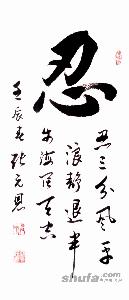 忍
忍三分风平
浪静退半
步海阔天空
壬辰
shufa.com